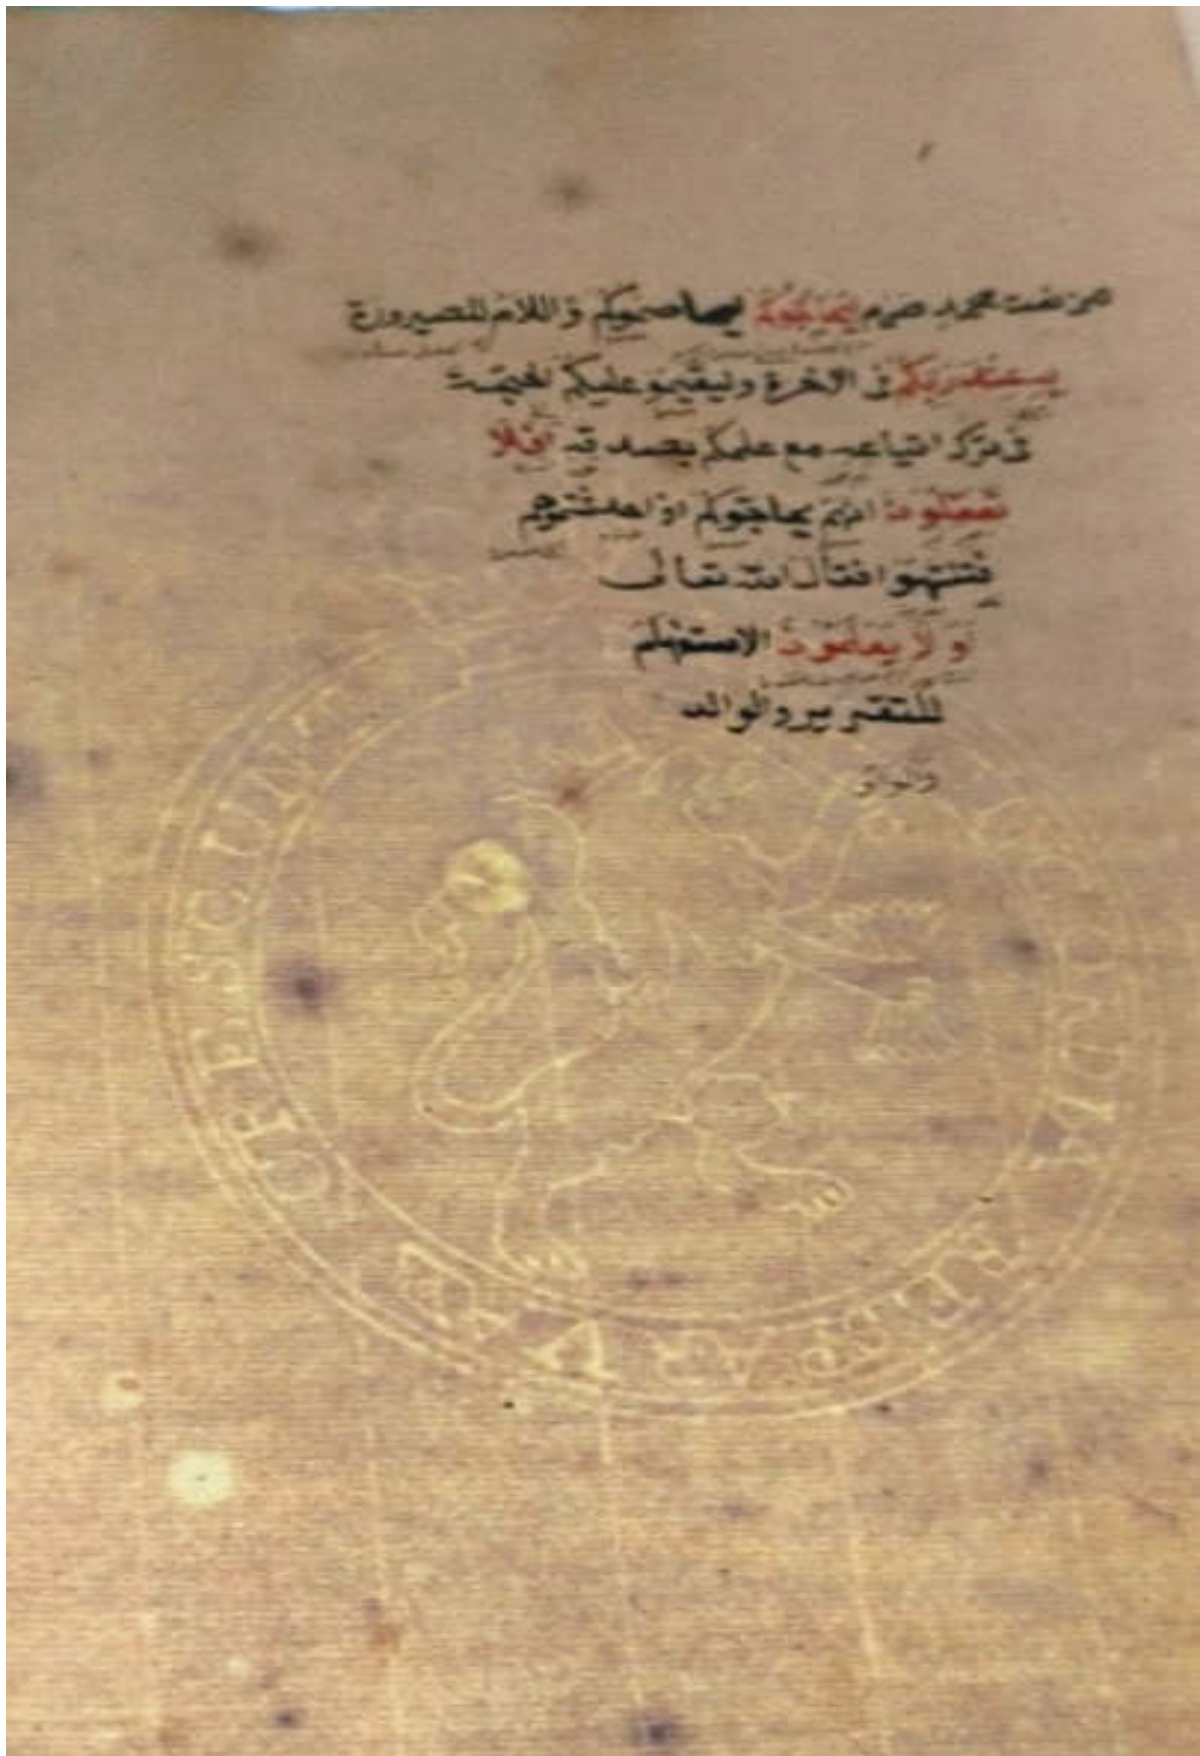 من نعت محمد صلعم ليحاجوكم ليخاصموكم واللام للصيرورة
به عند ربكم فى الاخرة وليقيموا عليكم الحجة
فى ترك اتباعه مع علمكم بصدقه افلا
تعقلون انهم يحاجوكم اذا حدثتموهم
فتنتهوا قال الله تعالى
اولا يعلمون الاستفهام
للتقرير والواو
والواو
CONCORDIA RES PARVAE CRESCUNT